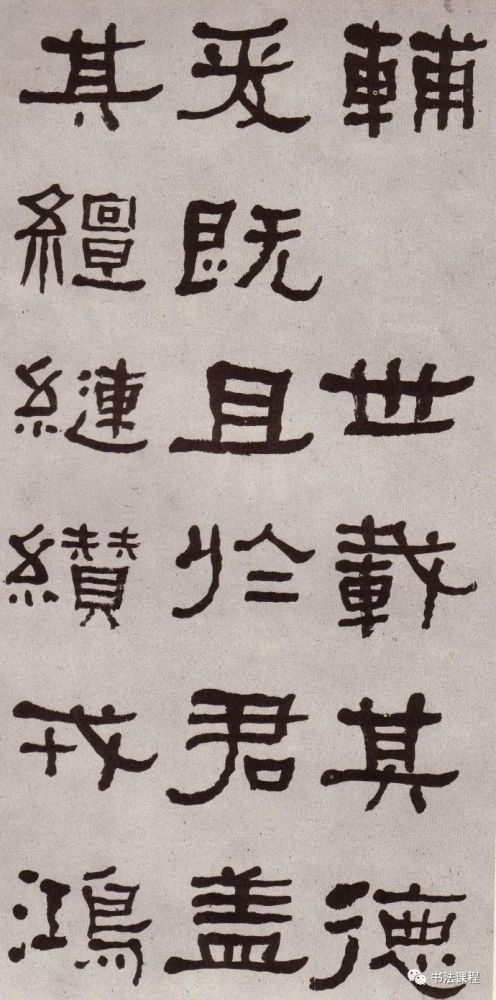 輔世載其德
爰既且於君盖
其繵縺纘戎鴻
书法课程